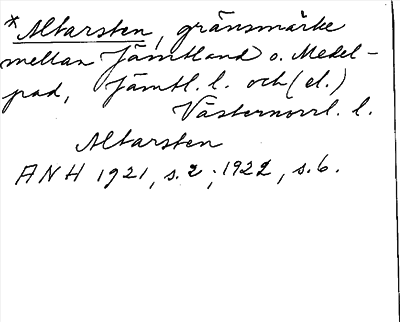 *Altarsten, gränsmärke
mellan Jämtland o. Medel-
pad, Jämtl. l. och (el.)
Västernorrl. l.
Altarsten
ANH 1921, s. 2; 1922, s. 6.